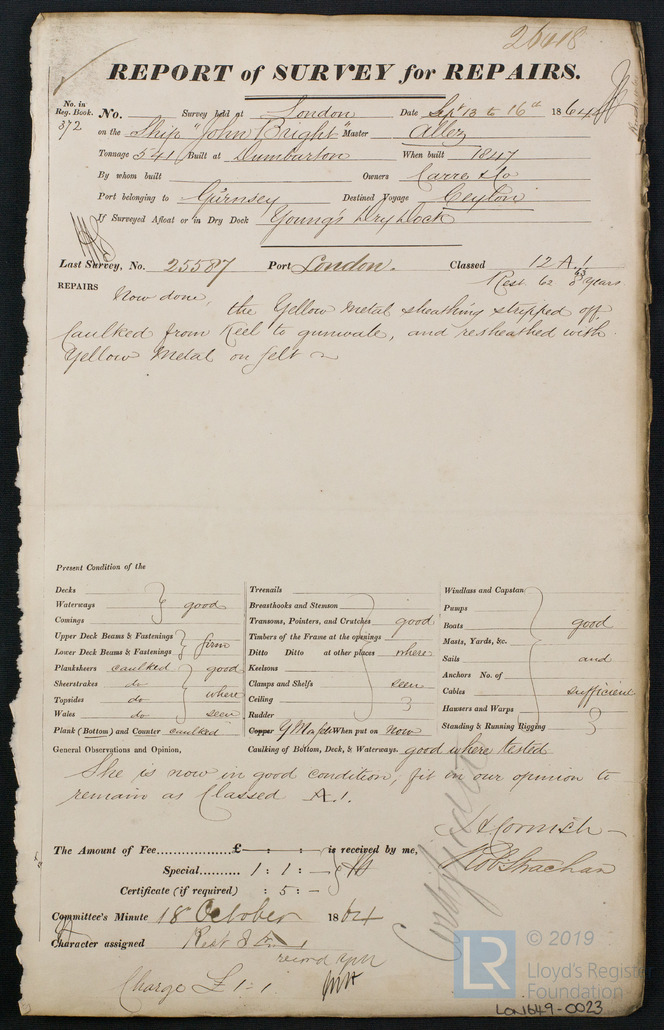 REPORT of SURVEY for REPAIRS.
No. in Reg. Book. 372 No. Survey held at London Date Sept 13 to 16th 1864
on the Ship "John Bright" Master Allez
Tonnage 541 Built at Dumbarton When built 1847
By whom built Owners Carre & Co
Port belonging to Gurnsey Destined Voyage Ceylon
If Surveyed Afloat or in Dry Dock Young's Dry Dock
Last Survey, No. 25587 Port London. Classed 12 A.1
Rest 62 8 years
63
REPAIRS Now done, the Yellow Metal sheathing stripped off
Caulked from Keel to gunwale, and resheathed with
Yellow Metal on felt
Present Condition of the
Decks
Waterways good
Comings
Upper Deck Beams & Fastenings firm
Lower Deck Beams & Fastenings
Planksheers caulked good
Sheerstrakes do where
Topsides do
Wales do seen
Plank (Bottom) and Counter caulked
Treenails
Breasthooks and Stemson
Transoms, Pointers, and Crutches good
Timbers of the Frame at the openings
Ditto Ditto at other places where
Keelsons
Clamps and Shelfs seen
Ceiling
Rudder
Copper Y Metal When put on Now
Windlass and Capstan
Pumps
Boats good
Masts, Yards, &c.
Sails and
Anchors No. of
Cables sufficient
Hawsers and Warps
Standing & Running Rigging
General Observations and Opinion, Caulking of Bottom, Deck, & Waterways. good where tested
She is now in good condition, fit in our opinion to
remain as Classed A.1.
The Amount of Fee £ : : is received by me,
Special 1 : 1 : —
Certificate (if required) : 5 : —
H Cornish
Rob Strachan
Certificate
Committee's Minute 18 October 1864
Character assigned Rest 8
record YM
Charge £ 1:1
LR
© 2019
Lloyd's Register
Foundation
LON649-0023